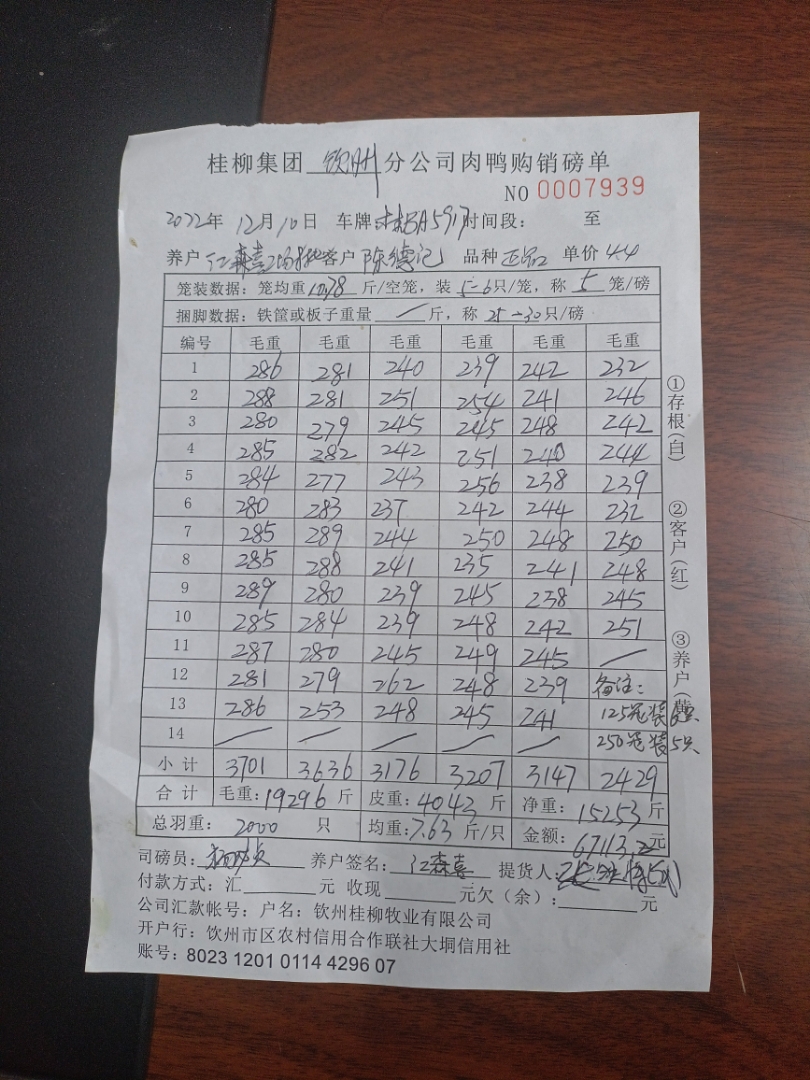 桂柳集团 钦州 分公司肉鸭购销磅单
NO 0007939
2022年 12月 10日 车牌: A5917 时间段: 至
养户 江森喜 客户 陈德记 品种 正品 单价 4.4
笼装数据: 笼均重 10.78 斤/空笼, 装 5-6 只/笼, 称 5 笼/磅
捆脚数据: 铁筐或板子重量 / 斤, 称 25-30 只/磅
编号 毛重 毛重 毛重 毛重 毛重 毛重
1 286 281 240 239 242 232
2 288 281 251 254 241 246
3 280 279 245 245 248 242
4 285 282 242 251 240 244
5 284 277 243 256 238 239
6 280 283 237 242 244 232
7 285 289 244 250 248 250
8 285 288 241 235 241 248
9 289 280 239 245 238 245
10 285 284 239 248 242 251
11 287 280 245 249 245 /
12 281 279 262 248 239 备注:
13 286 253 248 245 241 125笼装6只
14 / / / / / 250笼装5只
小计 3701 3636 3176 3207 3147 2429
合计 毛重: 19296 斤 皮重: 4043 斤 净重: 15253 斤
总羽重: 2000 只 均重: 7.63 斤/只 金额: 67113.2 元
司磅员: 养户签名: 江森喜 提货人:
付款方式: 汇 元 收现 元欠(余): 元
公司汇款帐号: 户名: 钦州桂柳牧业有限公司
开户行: 钦州市区农村信用合作联社大垌信用社
账号: 8023 1201 0114 4296 07
①存根(白)
②客户(红)
③养户(黄)